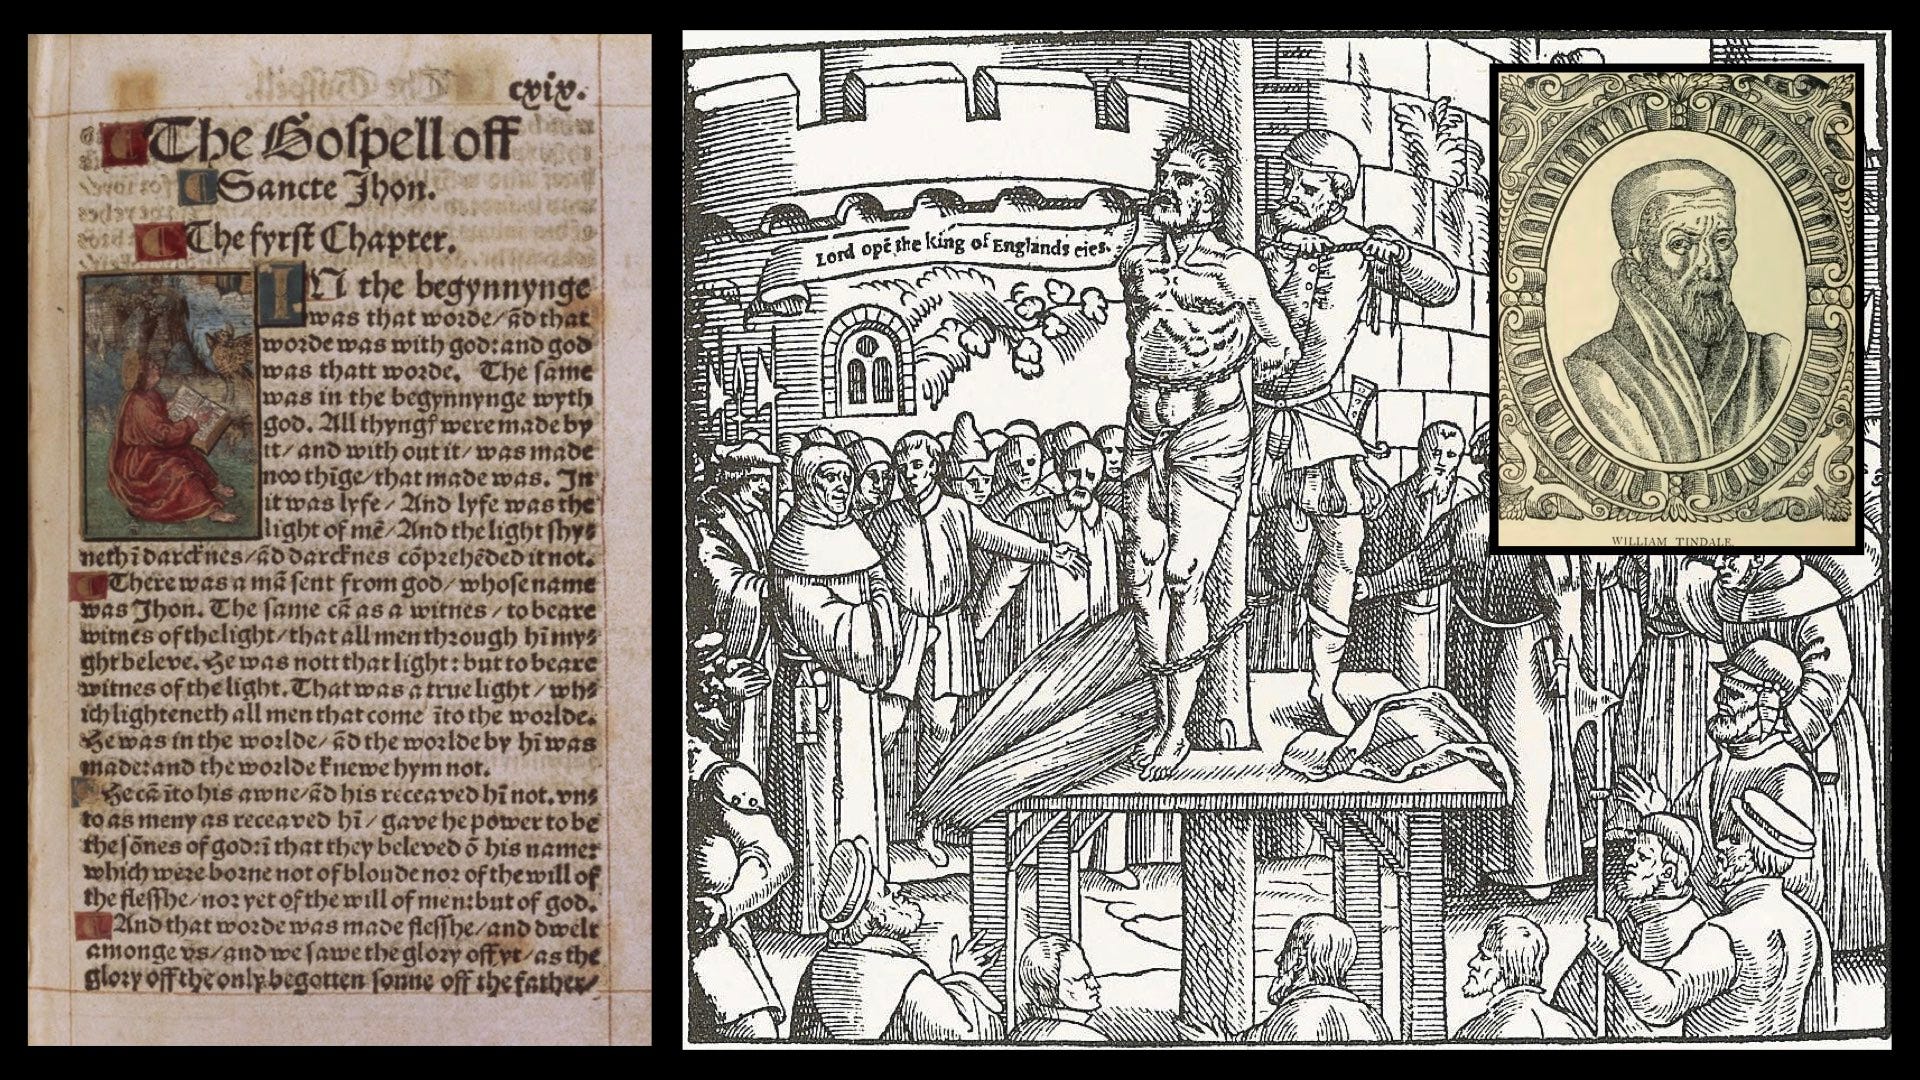 cxix.
The Gospell off
Sancte Jhon.
The fyrst Chapter.
IN the begynnynge
was that worde/ ād that
worde was with god: and god
was thatt worde. The same
was in the begynnynge wyth
god. All thyngſ were made by
it/ and with out it/ was made
noo thīge/ that made was. In
it was lyfe/ And lyfe was the
light of mē/ And the light shy⸗
neth ī darcknes/ ād darcknes cōprehēded it not.
There was a mā sent from god/ whose name
was Jhon. The same cā as a witnes/ to beare
witnes of the light/ that all men through hī my⸗
ght beleve. He was nott that light: but to beare
witnes of the light. That was a true light/ wh⸗
ich lighteneth all men that come īto the worlde.
He was in the worlde/ ād the worlde by hī was
made: and the worlde knewe hym not.
He cā īto his awne/ ād his receaved hī not. vn⸗
to as meny as receaved hī/ gave he power to be
the sōnes of god: ī that they beleved ō his name:
which were borne not of bloude nor of the will of
the flesshe/ nor yet of the will of men: but of god.
And that worde was made flesshe/ and dwelt
amonge vs/ and we sawe the glory off yt/ as the
glory off the only begotten sonne off the father/
Lord opē the king of Englands eies.
WILLIAM TINDALE.